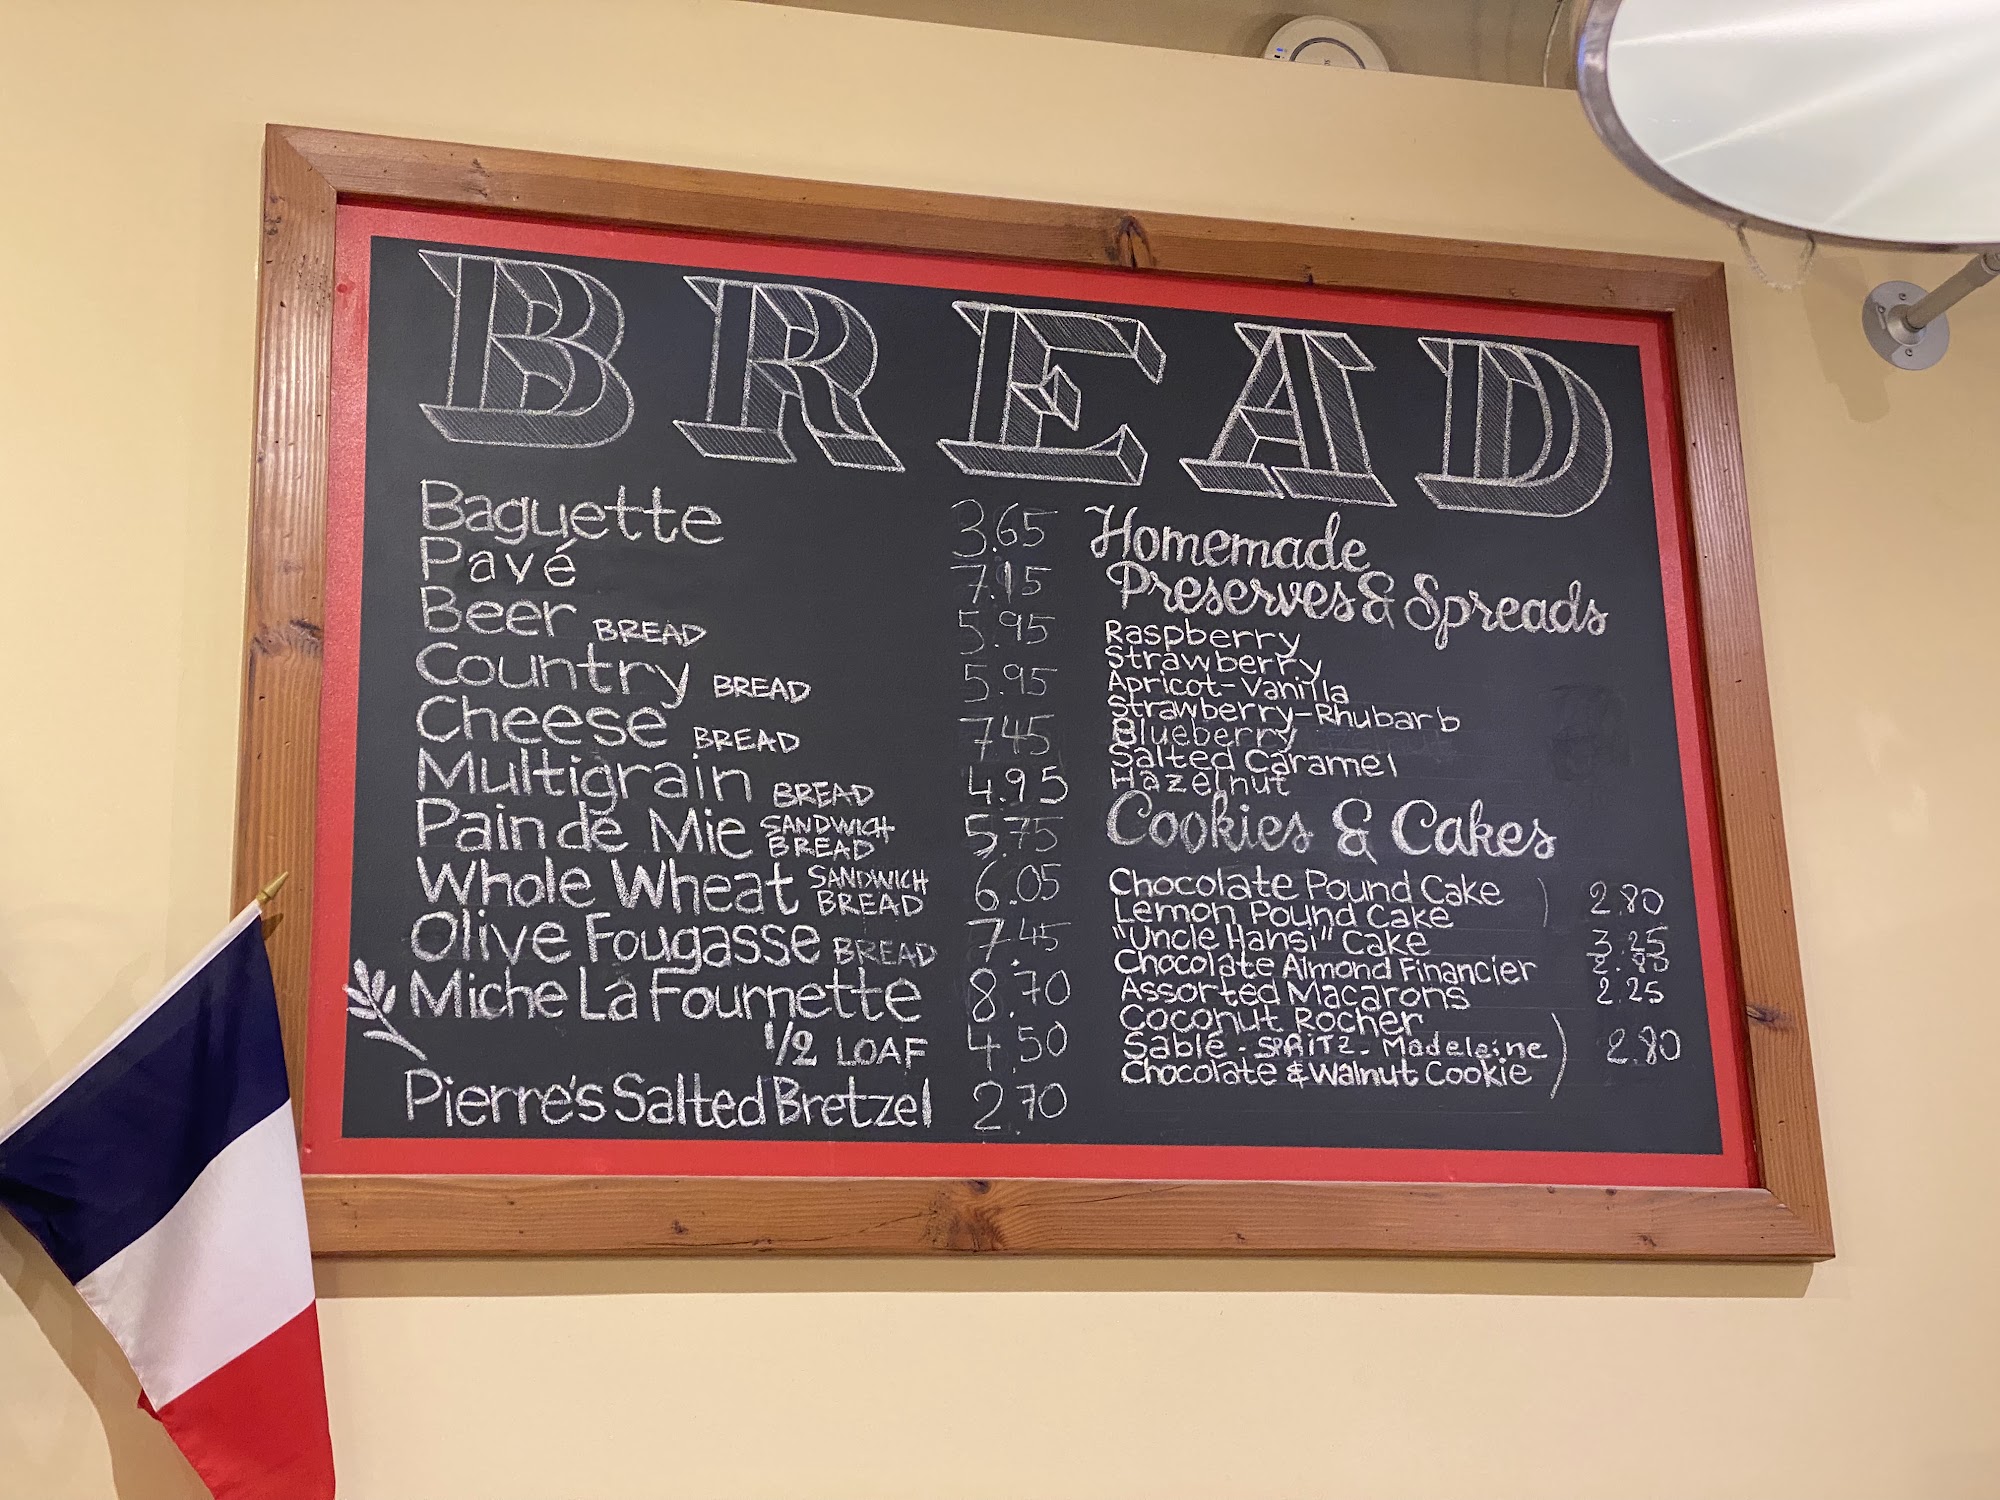 BREAD
Baguette 3.65
Pavé 7.15
Beer BREAD 5.95
Country BREAD 5.95
Cheese BREAD 7.45
Multigrain BREAD 4.95
Pain de Mie SANDWICH BREAD 5.75
Whole Wheat SANDWICH BREAD 6.05
Olive Fougasse BREAD 7.45
Miche La Fournette 8.70
1/2 LOAF 4.50
Pierre's Salted Bretzel 2.70
Homemade
Preserves & Spreads
Raspberry
Strawberry
Apricot-Vanilla
Strawberry-Rhubarb
Blueberry
Salted Caramel
Hazelnut
Cookies & Cakes
Chocolate Pound Cake
Lemon Pound Cake ) 2.80
"Uncle Hansi" Cake 3.25
Chocolate Almond Financier
Assorted Macarons 2.25
Coconut Rocher
Sablé - SPRITZ - Madeleine ) 2.80
Chocolate & Walnut Cookie